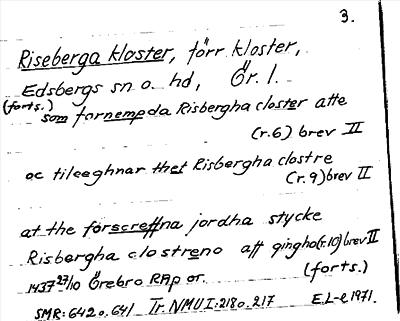 3.
Riseberga kloster, förr kloster,
Edsbergs sn o. hd, Ör. l.
(forts.)
som fornempda Risbergha closter atte
(r.6) brev II
oc tileeghnar thet Risbergha clostre
(r.9) brev II
at the forscreffna jordha stycke
Risbergha clostreno aff gingho (r.10) brev II
1437 27/10 Örebro RAp or. (forts.)
SMR: 642 o. 641 Tr. NMU I: 218 o. 217 E.L-e 1971.